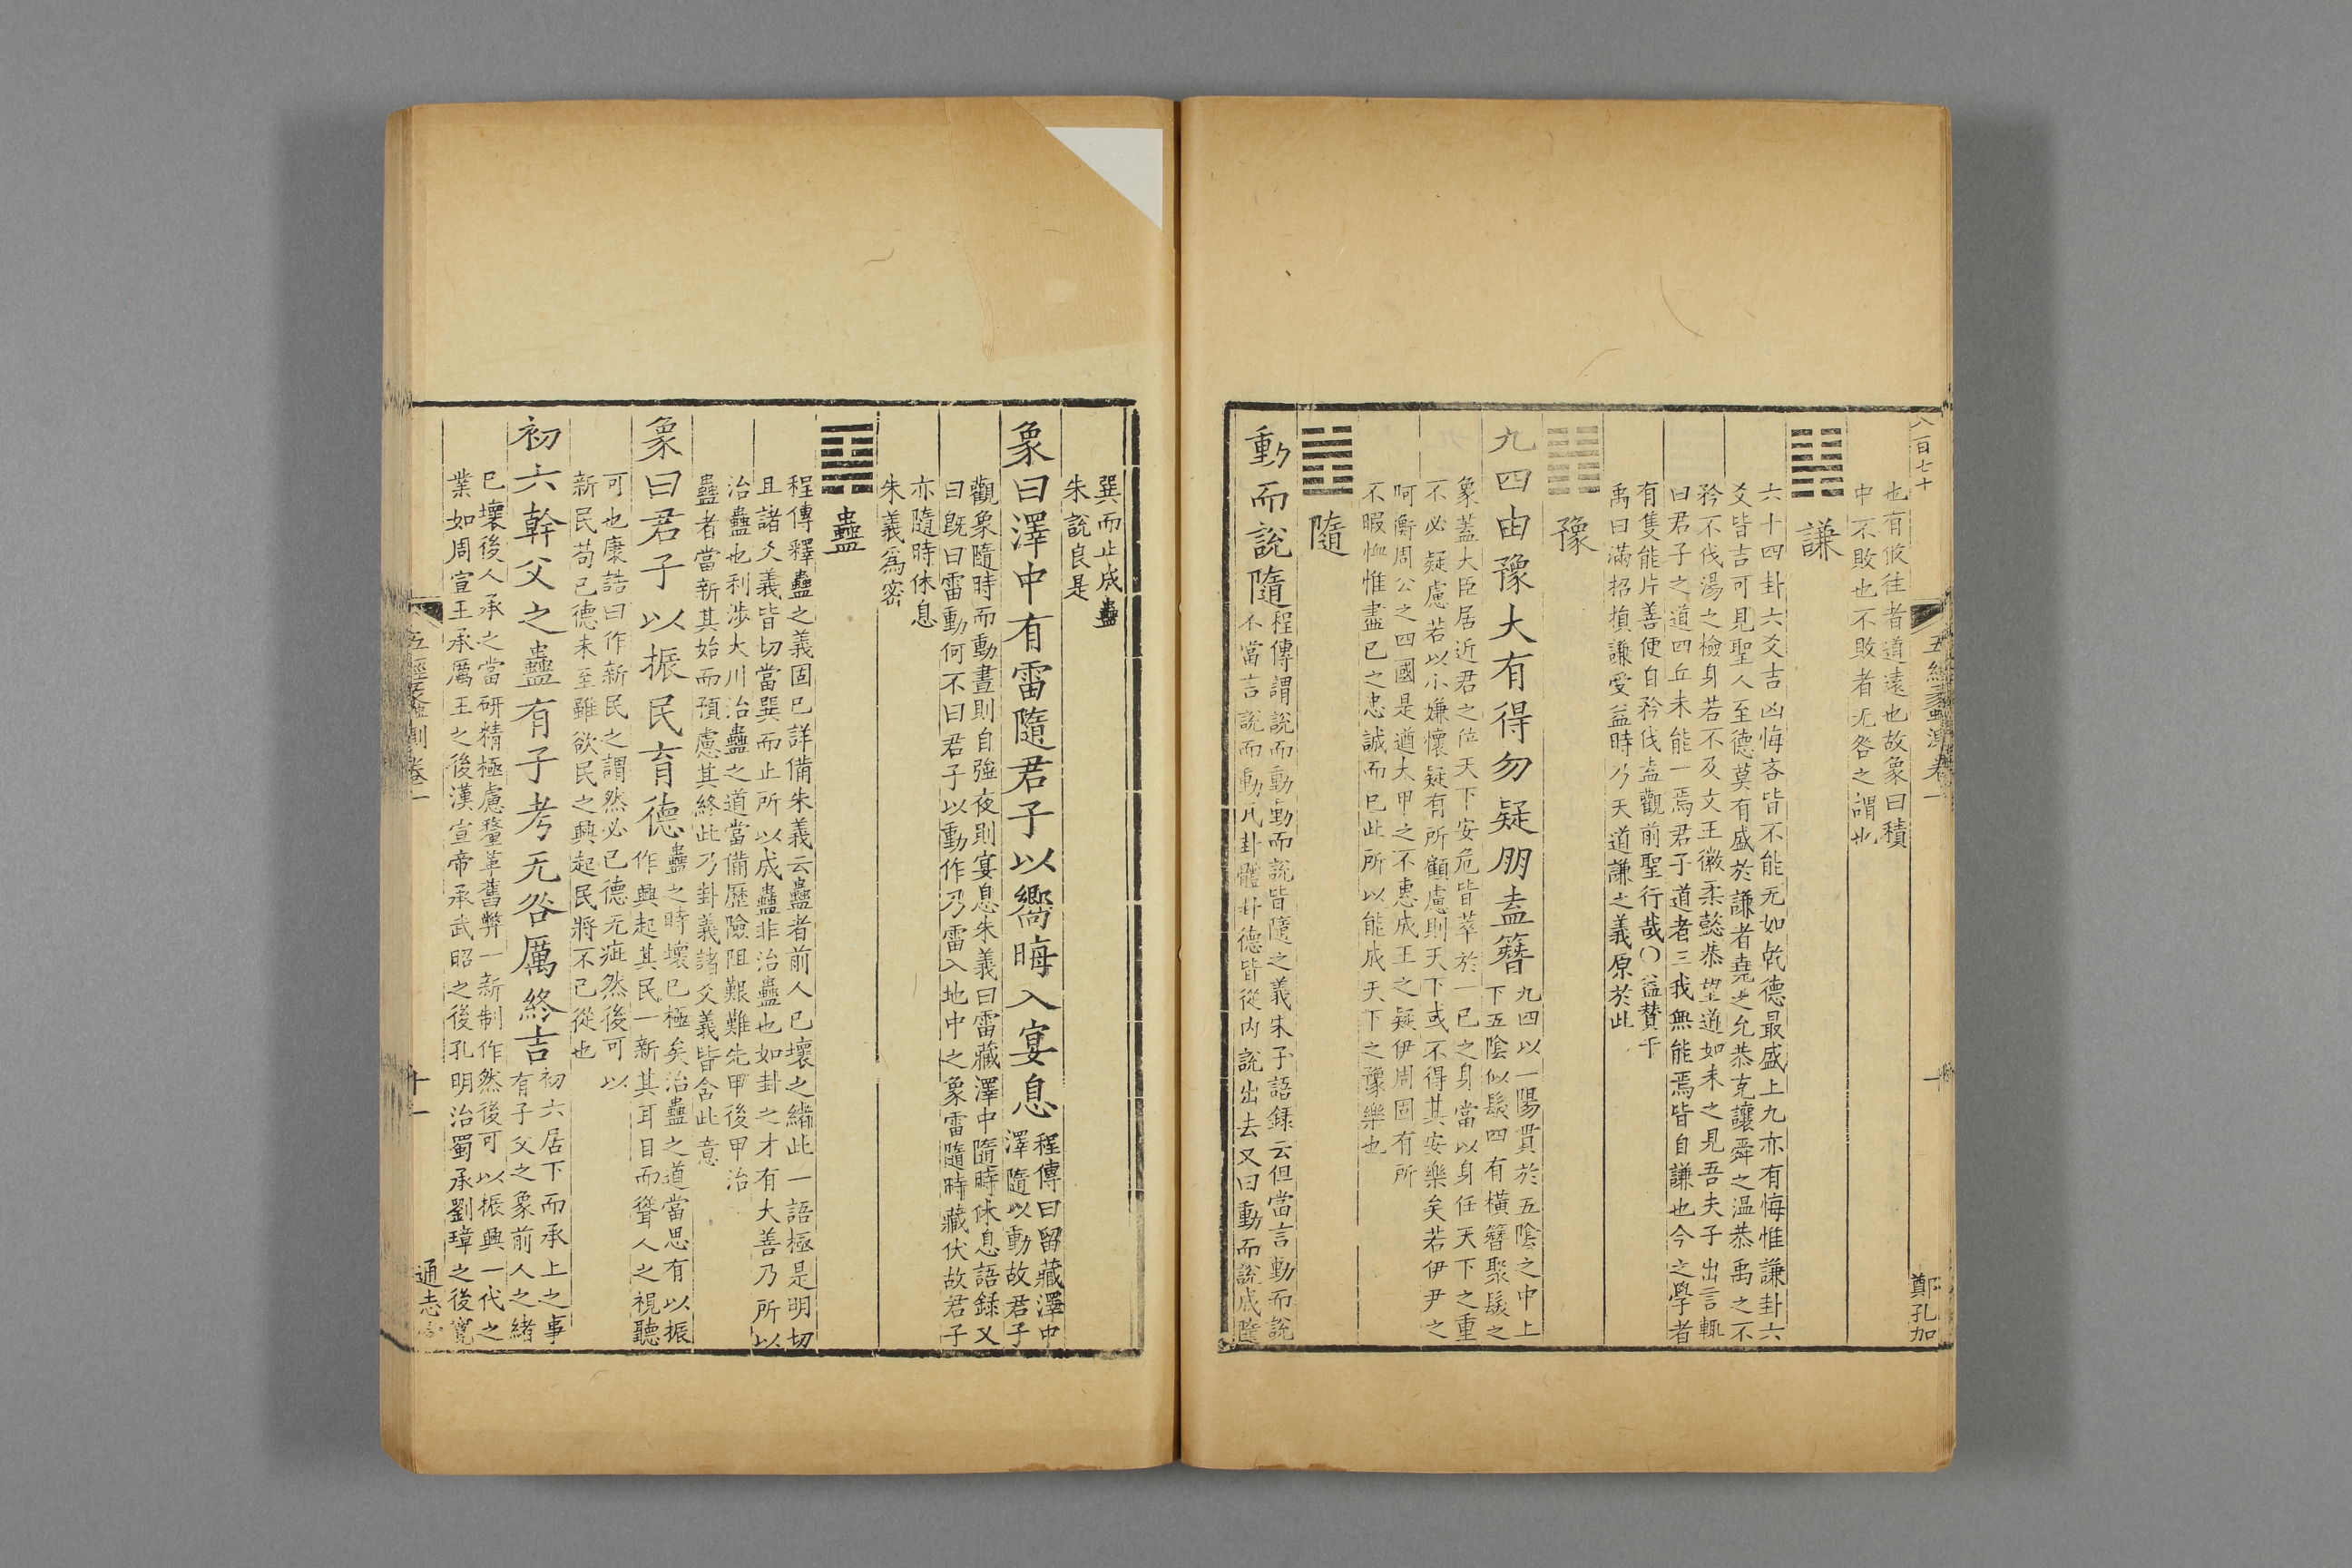 八百七十
五經蠡測卷一
十
鄭孔加
也有攸往者道遠也故象曰積
中不敗也不敗者无咎之謂也
謙
六十四卦六爻吉凶悔吝皆不能无如乾德最盛上九亦有悔惟謙卦六
爻皆吉可見聖人至德莫有盛於謙者堯之允恭克讓舜之温恭禹之不
矜不伐湯之檢身若不及文王徽柔懿恭望道如未之見吾夫子出言輒
曰君子之道四丘未能一焉君子道者三我無能焉皆自謙也今之學者
有隻能片善便自矜伐盍觀前聖行哉○益賛于
禹曰滿招損謙受益時乃天道謙之義原於此
豫
九四由豫大有得勿疑朋盍簪
九四以一陽貫於五陰之中上
下五陰似髮四有橫簪聚髮之
象蓋大臣居近君之位天下安危皆萃於一已之身當以身任天下之重
不必疑慮若以小嫌懷疑有所顧慮則天下或不得其安樂矣若伊尹之
阿衡周公之四國是遒大甲之不惠成王之疑伊周固有所
不暇恤惟盡已之忠誠而已此所以能成天下之豫樂也
隨
動而說隨
程傳謂說而動動而說皆隨之義朱子語録云但當言動而說
不當言說而動凡卦體卦德皆從内說出去又曰動而說成隨
巽而止成蠱
朱說良是
象曰澤中有雷隨君子以嚮晦入宴息
程傳曰留藏澤中
澤隨以動故君子
觀象隨時而動晝則自強夜則宴息朱義曰雷藏澤中隨時休息語録又
曰旣曰雷動何不曰君子以動作乃雷入地中之象雷隨時藏伏故君子
亦隨時休息
朱義爲密
蠱
程傳釋蠱之義固已詳備朱義云蠱者前人已壞之緒此一語極是明切
且諸爻義皆切當巽而止所以成蠱非治蠱也如卦之才有大善乃所以
治蠱也利涉大川治蠱之道當備歷險阻艱難先甲後甲治
蠱者當新其始而預慮其終此乃卦義諸爻義皆含此意
象曰君子以振民育德
蠱之時壞已極矣治蠱之道當思有以振
作興起其民一新其耳目而聳人之視聽
可也康誥曰作新民之謂然必已德无疵然後可以
新民苟已德未至雖欲民之興起民將不已從也
初六幹父之蠱有子考无咎厲終吉
初六居下而承上之事
有子父之象前人之緒
已壞後人承之當研精極慮釐革舊弊一新制作然後可以振興一代之
業如周宣王承厲王之後漢宣帝承武昭之後孔明治蜀承劉璋之後寛
五經蠡測卷一
十一
通志堂